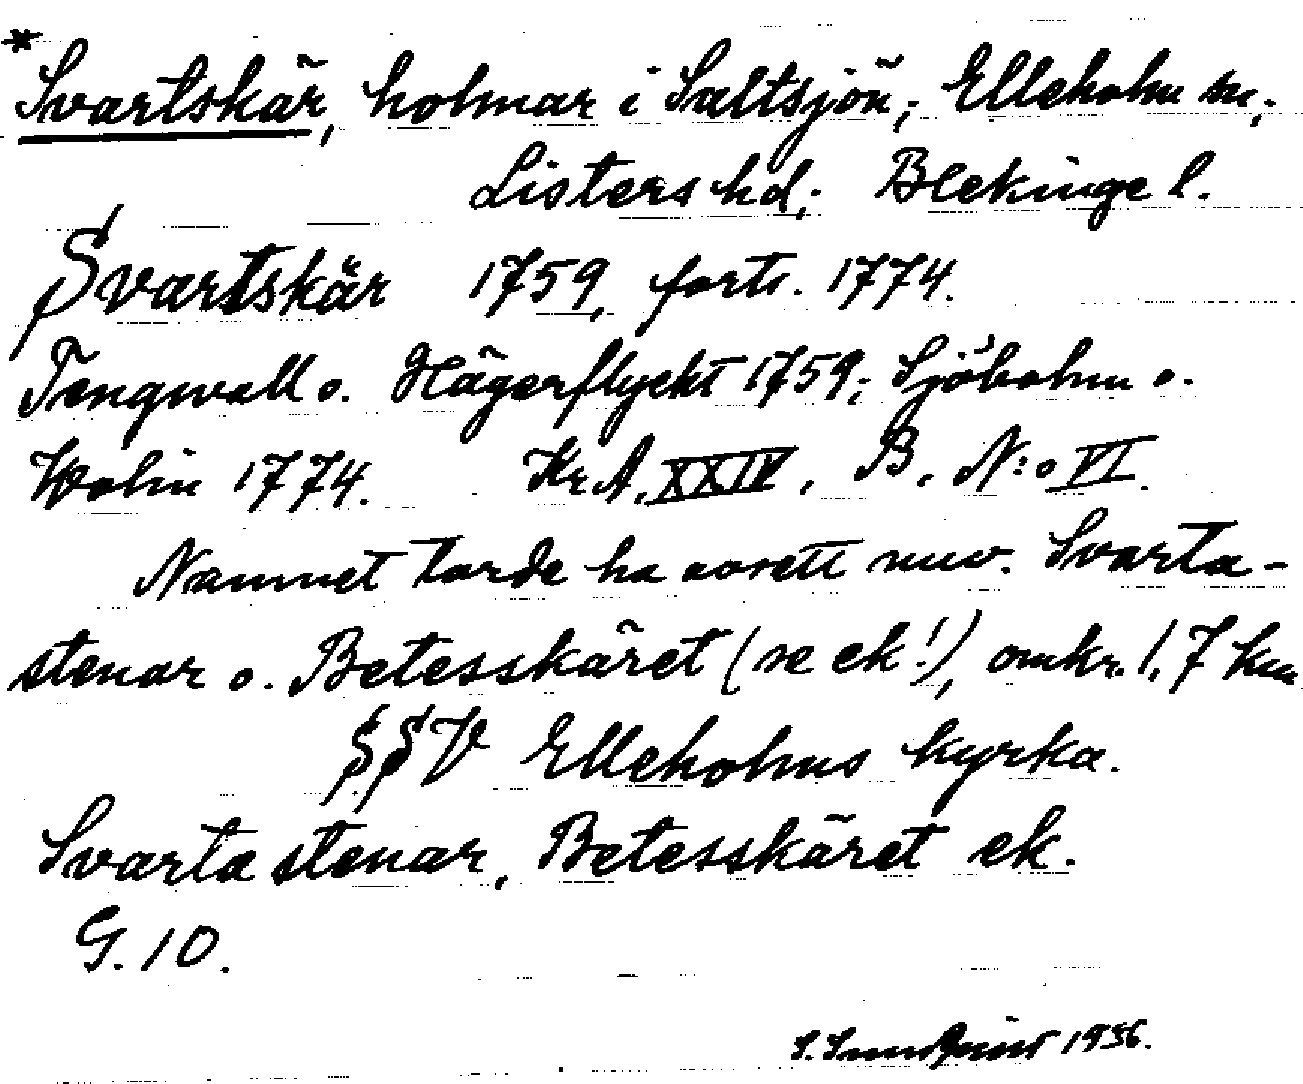 *Svartskär, holmar i Saltsjön, Elleholm sn,
Listers hd, Blekinge l.
Svartskär 1759, forts. 1774.
Tengwall o. Hägerflyckt 1759; Sjöbohm o.
Wolin 1774. Kr. A. XXIV, B, N:o VI.
Namnet torde ha avsett nuv. Svarta-
stenar o. Betesskäret (se ek!), omkr. 1,7 km
SSV Elleholms kyrka.
Svarta stenar, Betesskäret ek.
G. 10.
S. 1936.